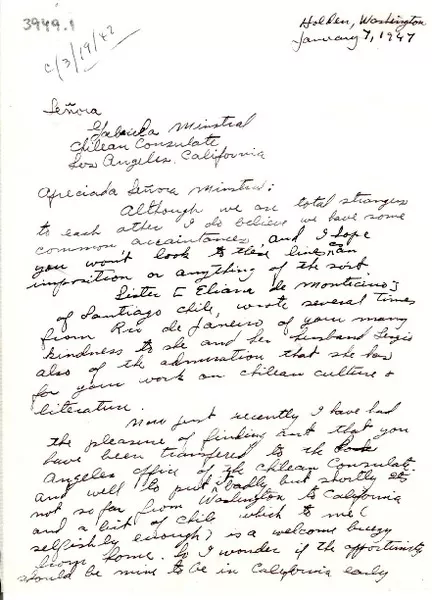 3949.1
c/3/19/47
Holden, Washington
January 7, 1947
Señora
Gabriela Minstral
Chilean Consulate
Los Angeles, California
Apreciada Señora Minstral:
Although we are total strangers
to each other I do believe we have some
common accaintances, and I hope
you won't look to these lines as an
imposition or anything of the sort
Sister [Eliana de Monticino]
of Santiago Chile, wrote several times
from Rio de Janeiro of your many
kindness to she and her husband Sergio
also of the admiration that she has
for your work on chilean culture &
literature.
Now just recently I have had
the pleasure of finding out that you
have been transferred to the Los
Angeles office of the Chilean Consulate.
and well to put it badly but shortly its
not so far from Washington to California
and a bit of Chile which to me (
selfishly enough) is a welcome
from home. So I wonder if the opportunity
should be mine to be in California early